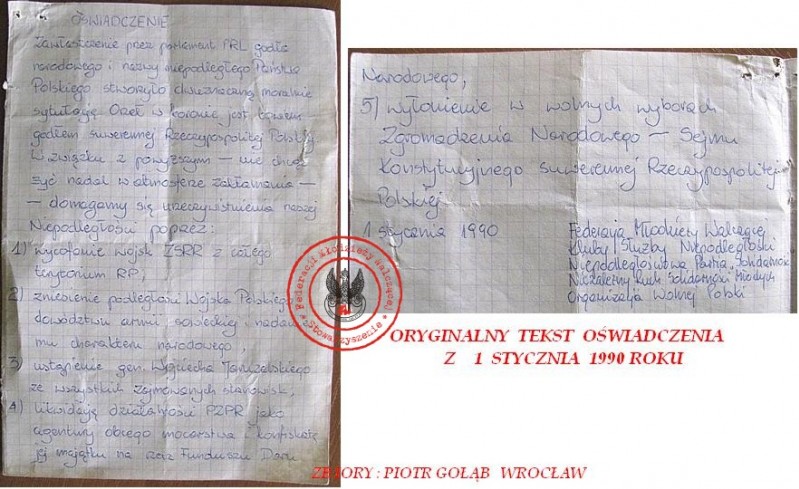 OŚWIADCZENIE
Zawłaszczenie przez parlament PRL godła
narodowego i nazwy niepodległego Państwa
Polskiego stworzyło dwuznaczną moralnie
sytuację. Orzeł w koronie jest bowiem
godłem suwerennej Rzeczypospolitej Polskiej
W związku z powyższym — nie chcąc
żyć nadal w atmosferze zakłamania —
— domagamy się urzeczywistnienia naszej
Niepodległości poprzez:
1) wycofanie wojsk ZSRR z całego
terytorium RP,
2) zniesienie podległości Wojska Polskiego
dowództwu armii sowieckiej i nadanie
mu charakteru narodowego,
3) ustąpienie gen. Wojciecha Jaruzelskiego
ze wszystkich zajmowanych stanowisk,
4) likwidację działalności PZPR jako
agentury obcego mocarstwa i konfiskatę
jej majątku na rzecz Funduszu Daru
Narodowego,
5) wyłonienie w wolnych wyborach
Zgromadzenia Narodowego — Sejmu
Konstytucyjnego suwerennej Rzeczypospolitej
Polskiej
1 stycznia 1990
Federacja Młodzieży Walczącej
Kluby Służby Niepodległości
Niepodległościowa Partia "Solidarność"
Niezależny Ruch Solidarność Młodych
Organizacja Wolnej Polski
Federacji Młodzieży Walczącej
Stowarzyszenie
ORYGINALNY TEKST OŚWIADCZENIA
Z 1 STYCZNIA 1990 ROKU
ZBIORY : PIOTR GOŁĄB WROCŁAW